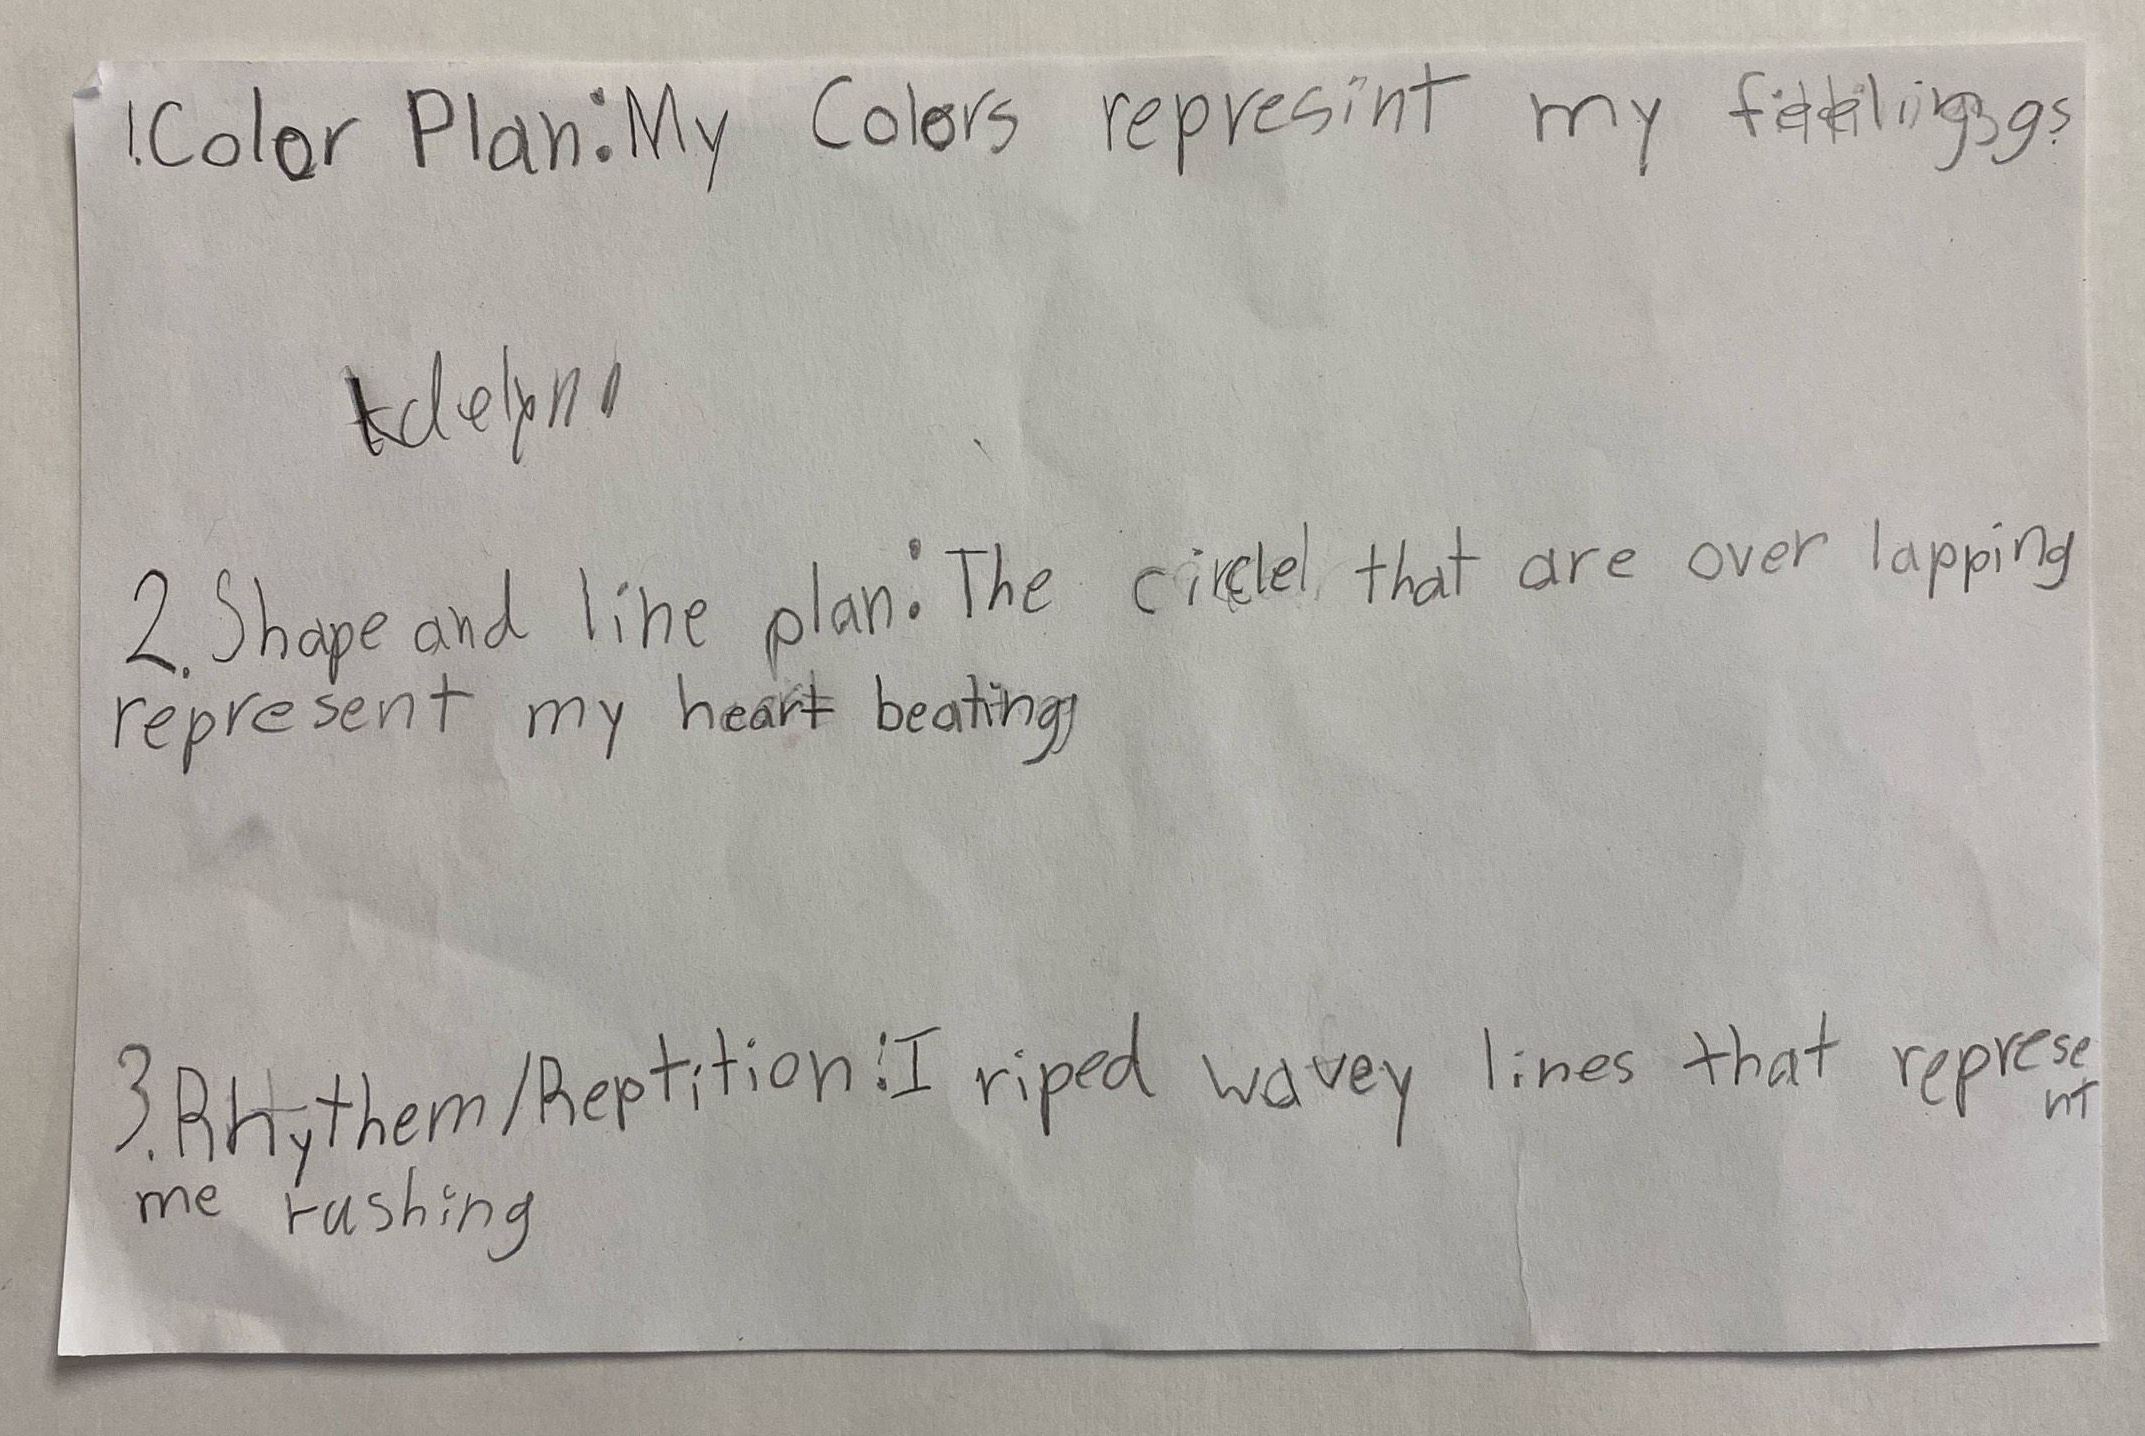 1. Color Plan: My Colors represint my feelings.
2. Shape and line plan: The circlel that are over lapping
represent my heart beating
3. Rhythem/Reptition: I riped wavey lines that represe
nt
me rushing